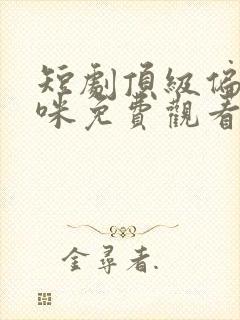 短劇頂級偏
咪免費觀看
金尋者.